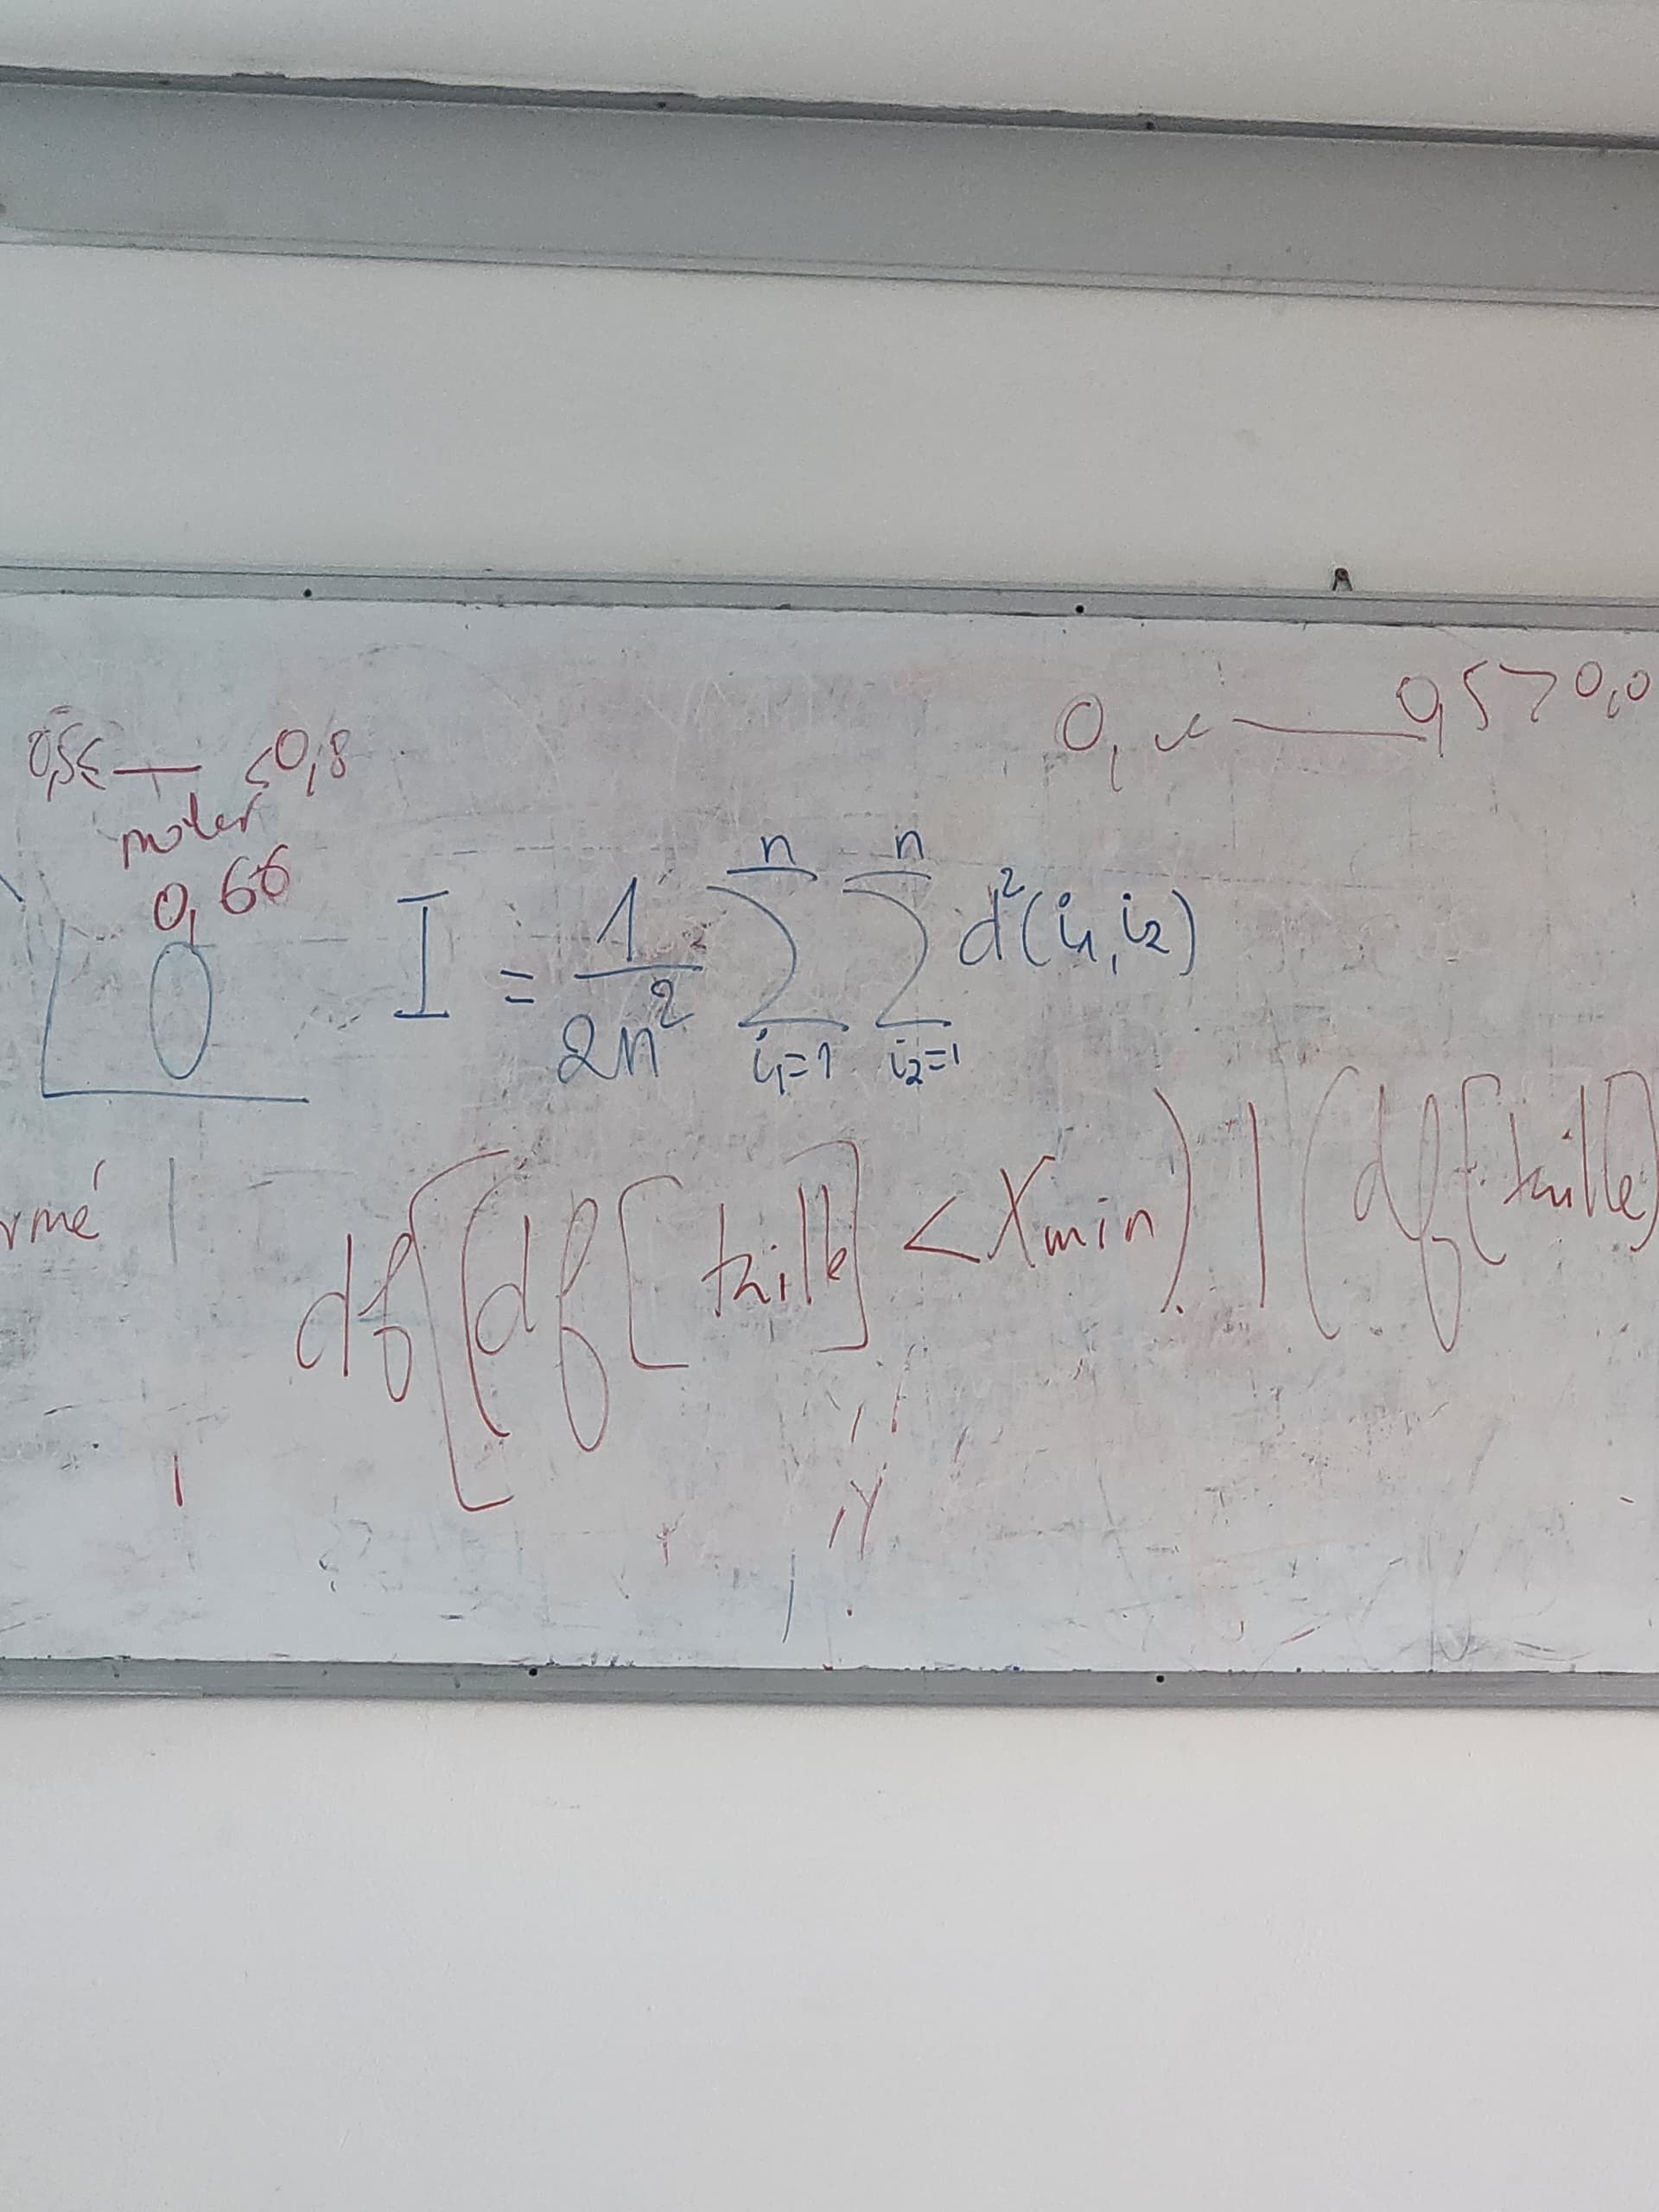 0,5 ≤ — ≤ 0,8
0, — 0,5 > 0,0
0,66
0
I = 1/2n² ∑_{i₁=1}^{n} ∑_{i₂=1}^{n} d²(i₁, i₂)
rmé
df[(df[taille] < Xmin) | (df[taille)